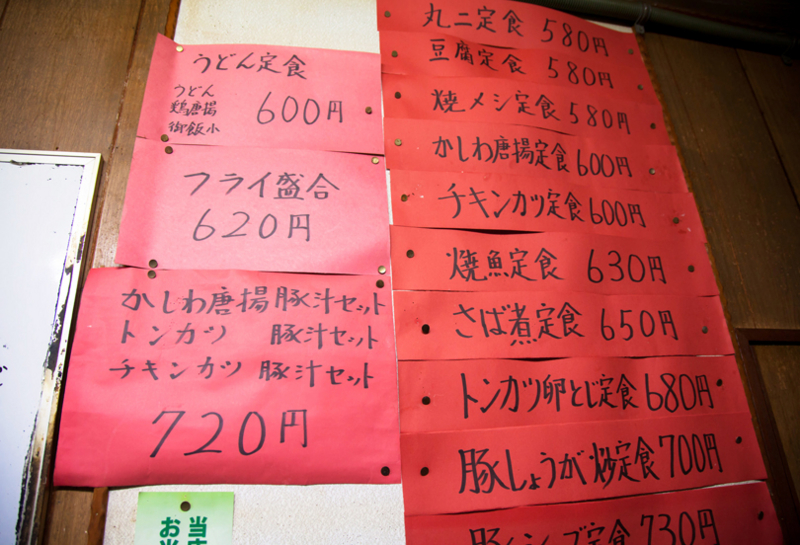 うどん定食
うどん
鶏唐揚
御飯小
600円
フライ盛合
620円
かしわ唐揚豚汁セット
トンカツ 豚汁セット
チキンカツ 豚汁セット
720円
丸二定食 580円
豆腐定食 580円
焼メシ定食 580円
かしわ唐揚定食 600円
チキンカツ定食 600円
焼魚定食 630円
さば煮定食 650円
トンカツ卵とじ定食 680円
豚しょうが炒定食 700円
定食 730円